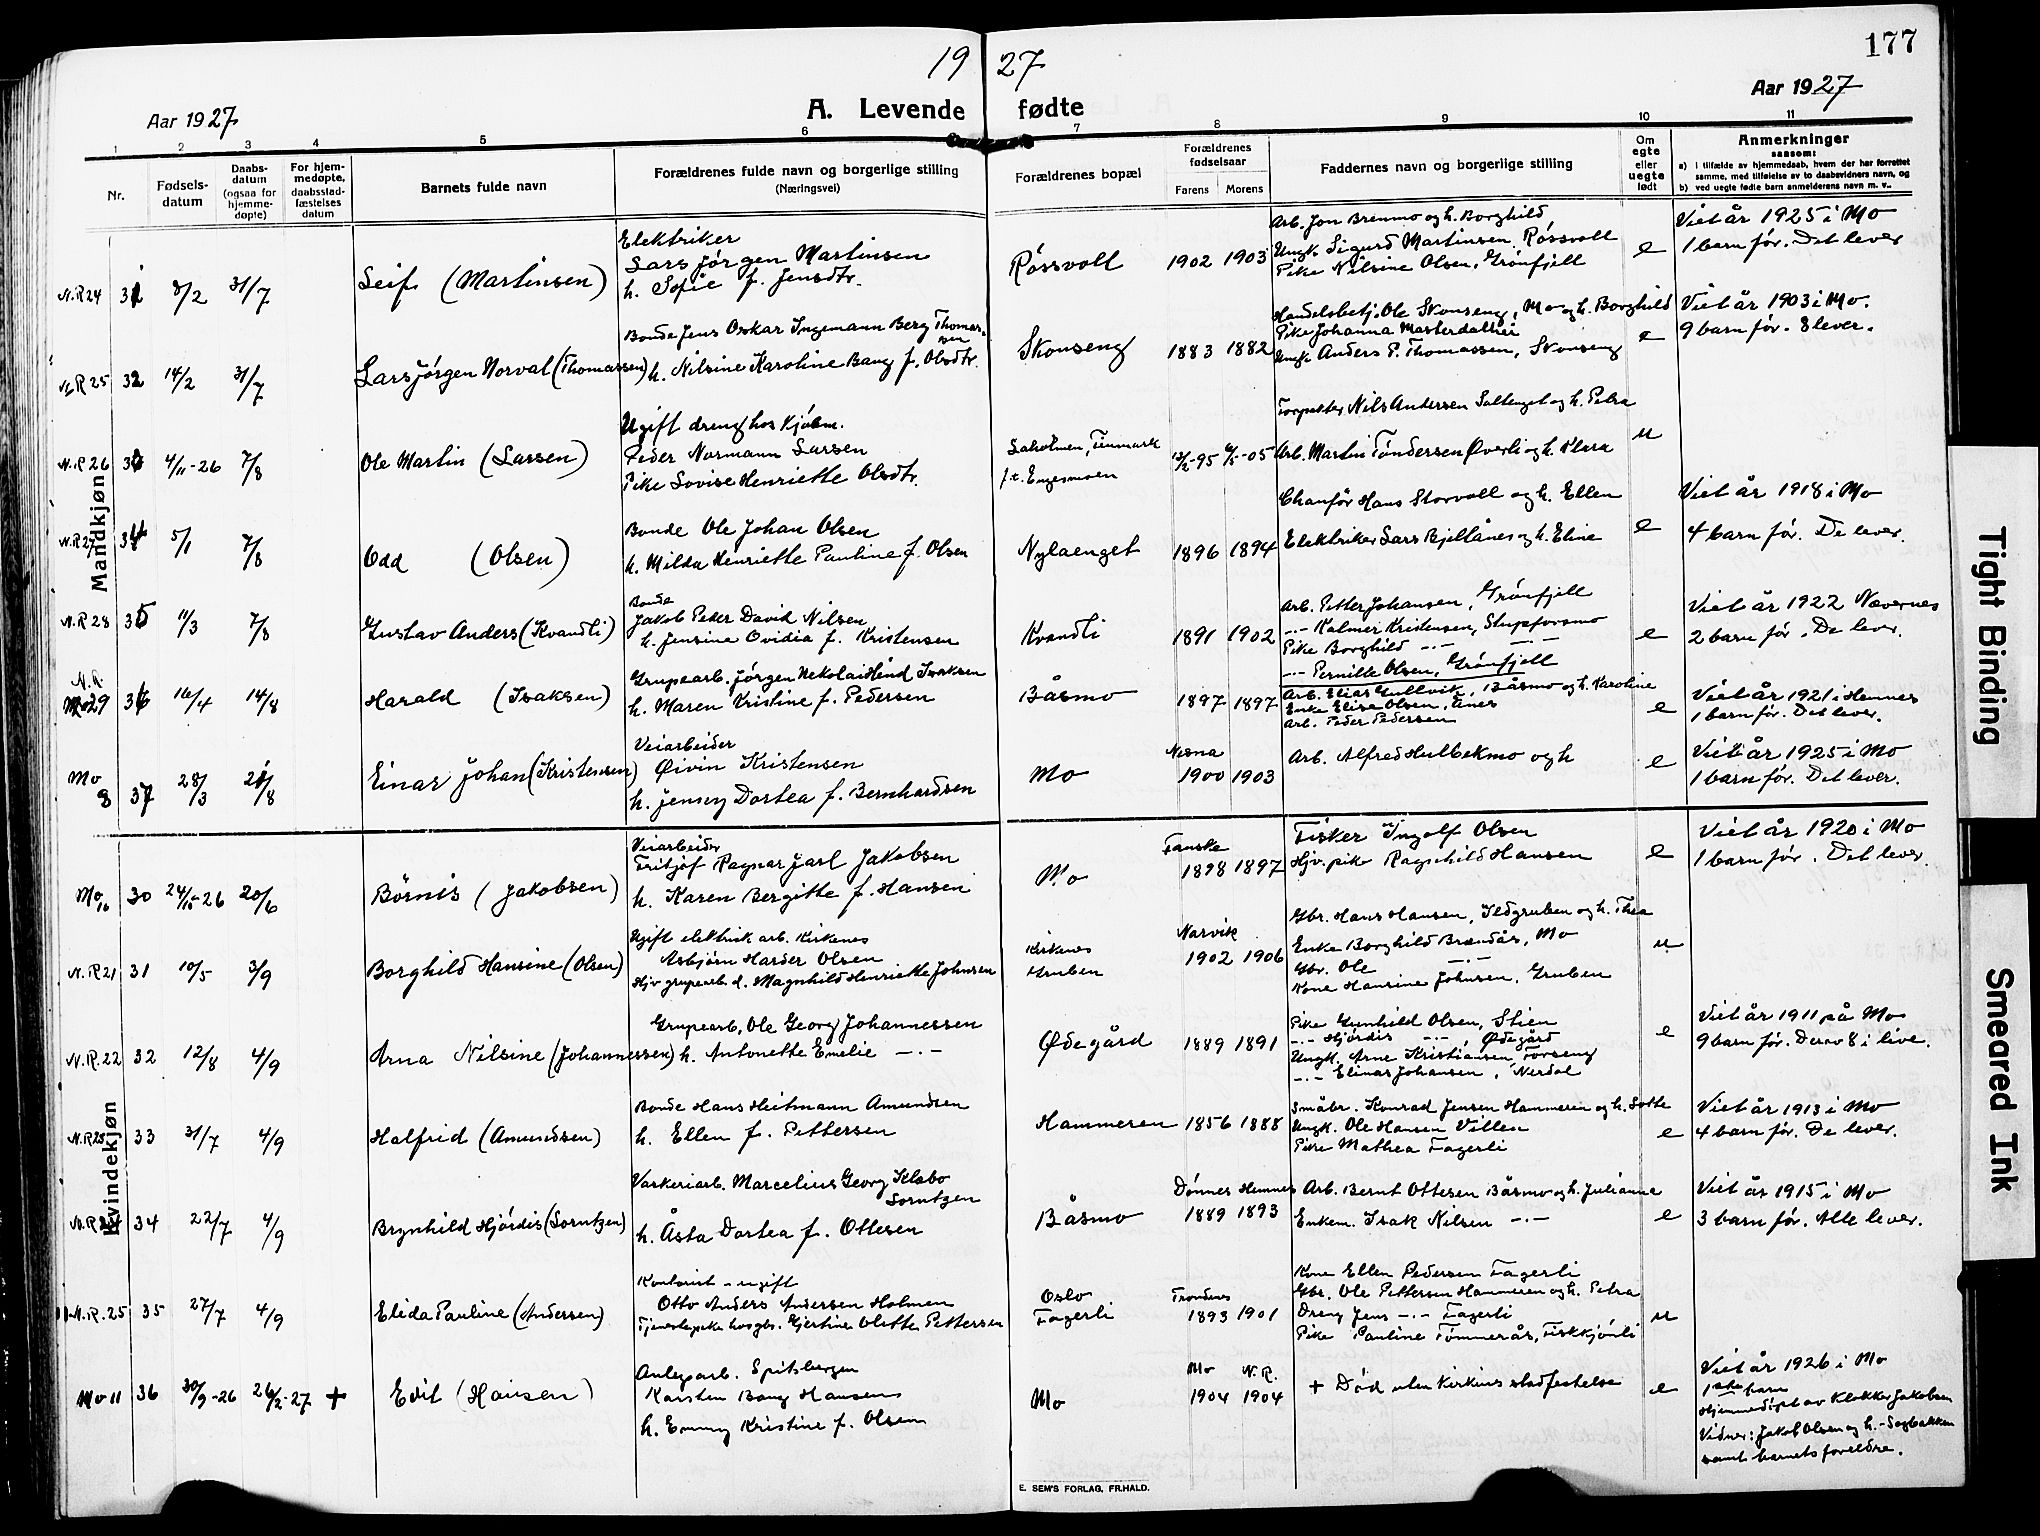 19 27
177
Aar 1927
A. Levende fødte
Aar 1927
1 2 3 4 5 6 7 8 9 10 11
Nr.
Fødsels-
datum
Daabs-
datum
(ogsaa for
hjemme-
døpte)
For hjem-
medøpte,
daabsstad-
fæstelses
datum
Barnets fulde navn
Forældrenes fulde navn og borgerlige stilling
(Næringsvei)
Forældrenes bopæl
Forældrenes
fødselsaar
Farens Morens
Faddernes navn og borgerlige stilling
Om
egte
eller
uegte
født
Anmerkninger
saasom:
a) i tilfælde av hjemmedaab, hvem der har forrettet
samme, med tilføielse av to daabsvidners navn, og
b) ved uegte fødte barn anmelderens navn m. v..
Mandkjøn
N.R 24 31 8/2 31/7 Leif (Martinsen)
Elektriker
Lars Jørgen Martinsen
h. Sofie f. Jensdtr.
Røssvoll 1902 1903
Arb. Jon Brenmo og h. Borghild,
Ungk. Sigurd Martinsen, Røssvoll
Pike Nilsine Olsen, Grønfjell
e
Viet år 1925 i Mo
1 barn før. Det lever
N.R 25 32 14/2 31/7 Lars Jørgen Norval (Thomassen)
Bonde Jens Oskar Ingemann Berg Thomas-
sen
h. Nilsine Karoline Bang f. Olsdtr.
Skonseng 1883 1882
Handelsbetj. Ole Skonseng, Mo og h. Borghild
Pike Johanna
Ungk Anders P. Thomassen, Skonseng
e
Viet år 1903 i Mo.
9 barn før. 8 lever.
N.R 26 33 4/11-26 7/8 Ole Martin (Larsen)
Ugift dreng hos Kjøbm.
Peder Normann Larsen
Pike Lovise Henriette Olsdtr.
Finmark
f.t. Engesmoen
-95 -05
Nils Andersen Saltenget og h. Petra
Arb. Martin Tøndersen Øverli og h. Klara
u
N.R 27 34 5/1 7/8 Odd (Olsen)
Bonde Ole Johan Olsen
h. Milda Henriette Pauline f. Olsen
Nylaenget 1896 1894
Chauför Hans Storvoll og h. Ellen
Elektriker Lars Bjellånes og h. Eline
e
Viet år 1918 i Mo
4 barn før. De lever.
N.R 28 35 11/3 7/8 Gustav Anders (Kvandli)
Bonde
Jakob Peder David Nilsen
h. Jensine Ovidia f. Kristensen
Kvandli 1891 1902
Arb. Petter Johansen, Grønfjell
-"- Kalmer Kristensen, Stupforsmo
Pike Borghild -"- -"-
-"- Pernille Olsen, Grønfjell
e
Viet år 1922 Nævernes
2 barn før. De lever.
N.R.
29 36 16/4 14/8 Harald (Isaksen)
Grupearb. Jørgen Nekolai Hånd Isaksen
h. Maren Kristine f. Pedersen
Båsmo 1897 1897
Arb. Elias Gullvik, Båsmo og h. Karoline
Enke Elise Olsen, Ånes
Arb. Peder Pedersen
e
Viet år 1921 i Hemnes
1 barn før. Det lever.
Mo
8 37 28/3 21/8 Einar Johan (Kristensen)
Veiarbeider
Øivin Kristensen
h. Jenny Dortea f. Bernhardsen
Mo
Nesna
1900 1903
Arb. Alfred Hulbekmo og h
e
Viet år 1925 i Mo
1 barn før. Det lever.
Kvindekjøn
Mo 10 30 24/10-26 20/6 Børnis (Jakobsen)
Veiarbeider
Fritjof Ragnar Jarl Jakobsen
h. Karen Bergitte f. Hansen
Mo
Fauske
1898 1897
Fisker Ingolf Olsen
Hjv. pike Ragnhild Hansen
e
Viet år 1920 i Mo
1 barn før. Det lever
N.R 21 31 10/5 3/9 Borghild Hansine (Olsen)
Ugift elektrisk arb. Kirkenes
Asbjørn Harder Olsen
Hjv grupearb. d. Magnhild Henriette Johnsen
Kirkenes
Gruben
Narvik
1902 1906
Gbr. Hans Hansen, Ildgruben og h. Thea
Enke Borghild Brændås, Mo
Gbr. Ole -"-
Kone Hansine Johnsen, Gruben
u
N.R. 22 32 12/8 4/9 Arna Nilsine (Johannessen)
Grupearb. Ole Georg Johannessen
h. Antonette Emelie -"-
Ødegård 1889 1891
Pike Gunhild Olsen, Stien
-"- Hjørdis -"-, Ødegård
Ungk. Arne Kristiansen Forseng
-"- Elinar Johansen, Nerdal
e
Viet år 1911 på Mo
9 barn før. Derav 8 i live.
N.R 23 33 31/7 4/9 Halfrid (Amundsen)
Bonde Hans Heitmann Amundsen
h. Ellen f. Pettersen
Hammeren 1856 1888
Småbr. Konrad Jensen Hammeren og h. Lotte
Ungk. Ole Hansen Villen
Pike Mathea Fagerli
e
Viet år 1913 i Mo
4 barn før. De lever.
N.R 24 34 22/7 4/9 Brynhild Hjørdis (Sorntzen)
Vaskeriarb. Marcelius Georg Klabo
Sorntzen
h. Åsta Dortea f. Ottesen
Båsmo
Dønnes Hemnes
1889 1893
Arb. Bernt Ottesen Båsmo og h. Julianne
Enkem. Isak Nilsen -"-
e
Viet år 1915 i Mo
3 barn før. Alle lever.
N.R. 25 35 27/7 4/9 Elida Pauline (Andersen)
Kontorist - ugift
Otto Anders Andersen Holmen
Tjenestepike hos gbr. Gjertine Olette Pettersen
Oslo
Fagerli
Trondenes
1893 1901
Kone Ellen Pedersen Fagerli
Gbr. Ole Pettersen Hammeren og h. Petra
Dreng Jens -"- Fagerli
Pike Pauline Tømmerås, Fiskkjønli
u
Mo 11 36 30/9-26 26/2-27 + Edit (Hansen)
Anlegsarb. Spitsbergen
Karsten Bang Hansen
h. Emmy Kristine f. Olsen
Mo
Mo N.R.
1904 1904
+ Død uten kirkens stadfestelse
e
Viet år 1926 i Mo
1ste barn
Hjemmedöpt av Klokker Jakobsen
Vidner: Jakob Olsen og h. - Sagbakken
samt barnets foreldre.
E. SEM'S FORLAG, FR.HALD.
Tight Binding
Smeared Ink